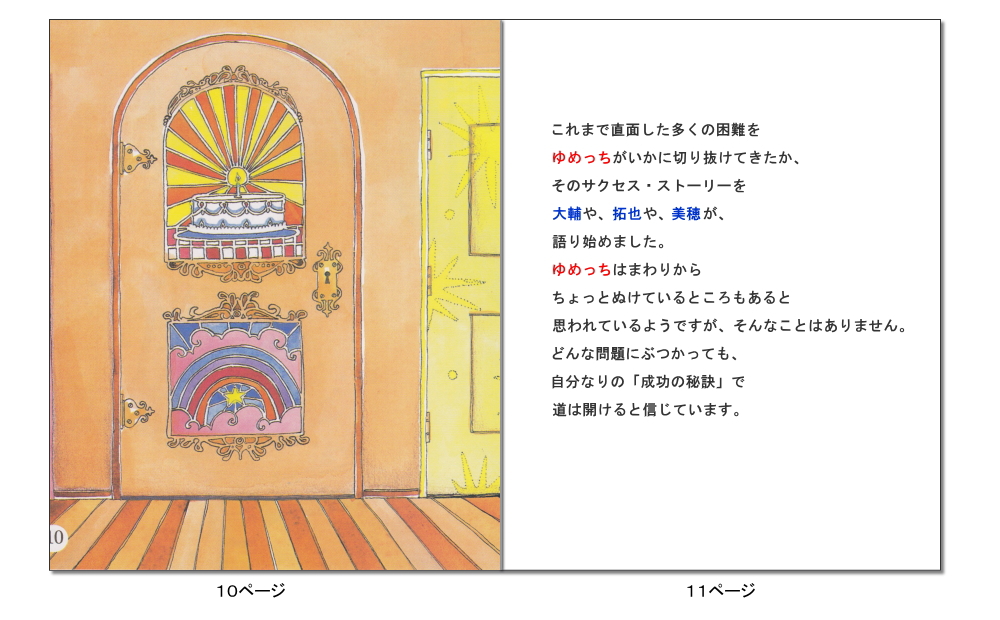 これまで直面した多くの困難を
ゆめっちがいかに切り抜けてきたか、
そのサクセス・ストーリーを
大輔や、拓也や、美穂が、
語り始めました。
ゆめっちはまわりから
ちょっとぬけているところもあると
思われているようですが、そんなことはありません。
どんな問題にぶつかっても、
自分なりの「成功の秘訣」で
道は開けると信じています。
10
10ページ
11ページ